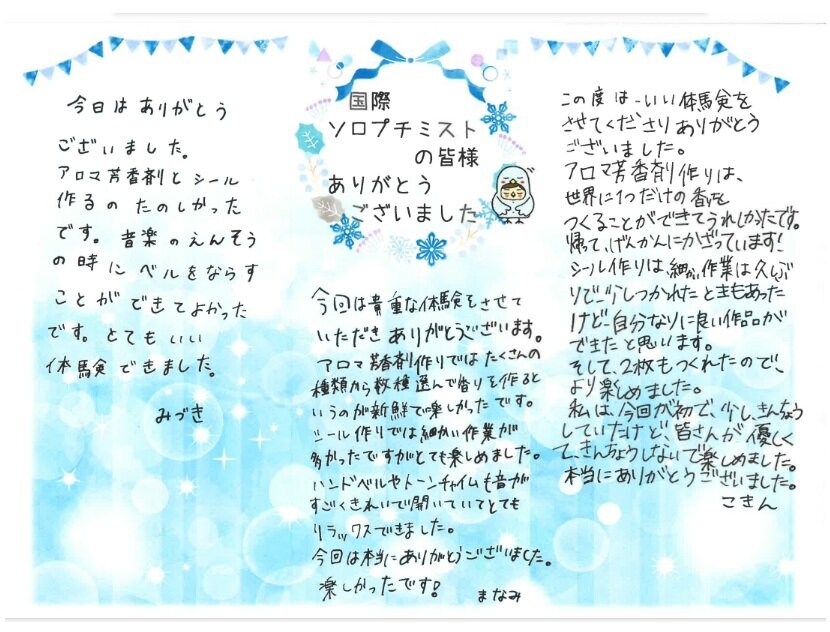 今日は ありがとう
ございました。
アロマ芳香剤と シール
作るの たのしかった
です。音楽のえんそう
の時に ベルをならす
ことが できてよかった
です。とてもいい
体馬剣 できました。
みづき
国際
ソロプチミスト
の皆様
ありがとう
ございました
今回は貴重な体馬剣をさせて
いただき ありがとうございます。
アロマ芳香剤作りでは たくさんの
種類から数種選んで香りを作ると
いうのが新鮮で楽しかったです。
シール作りでは細かい作業が
多かったですがとても楽しめました。
ハンドベルやトーンチャイムも音が
すごくきれいで聞いていてとても
リラックスできました。
今回は本当にありがとうございました。
楽しかったです!
まなみ
この度は いい体馬剣を
させてくださり ありがとう
ございました。
アロマ芳香剤作りは、
世界に1つだけの香りを
つくることができてうれしかったです。
帰って、げんかんにかざっています!
シール作りは、細かい作業は久しぶ
りで少しつかれたときもあった
けど自分なりに良い作品が
できたと思います。
そして、2枚もつくれたので、
より楽しめました。
私は、今回が初で、少し、きんちょう
していたけど、皆さんが優しく
て、きんちょうしないで楽しめました。
本当にありがとうございました。
こきん